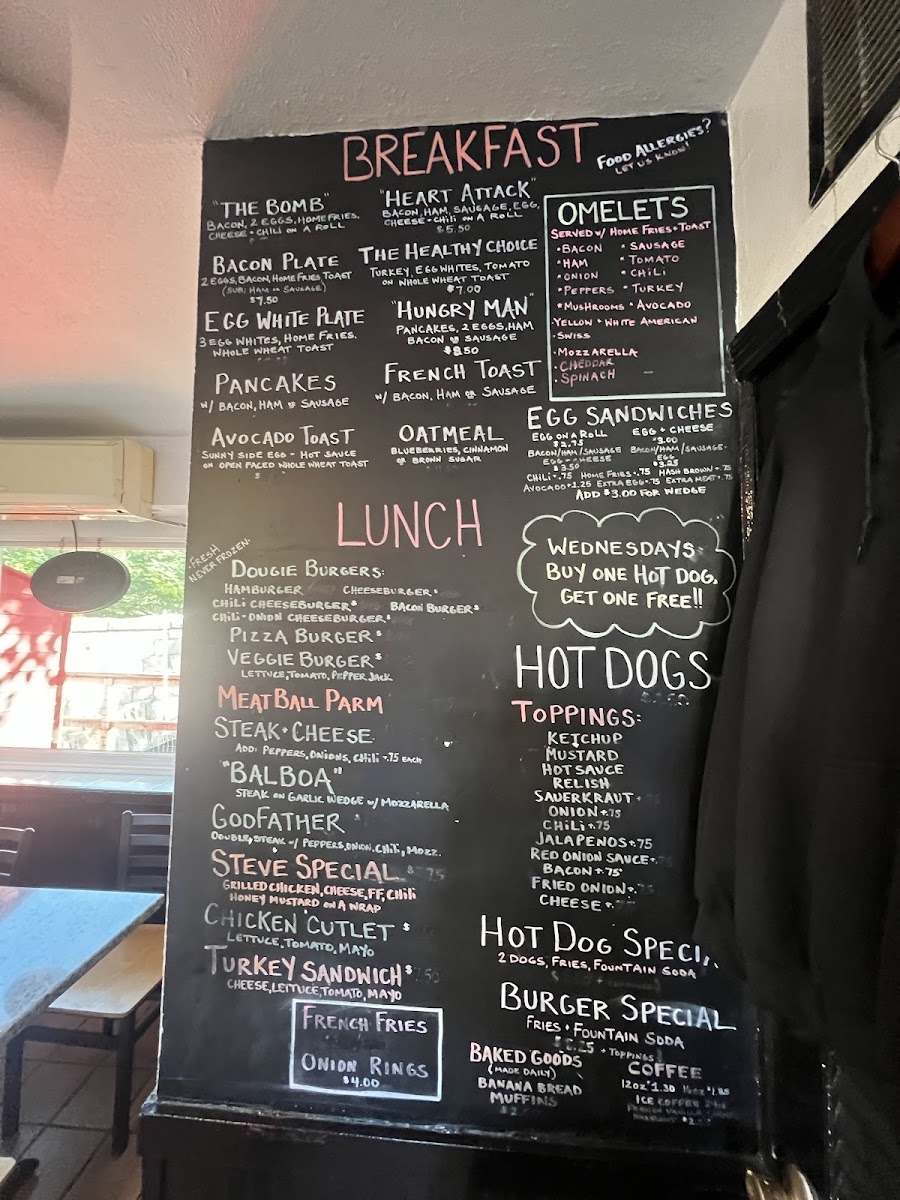 BREAKFAST
FOOD ALLERGIES?
LET US KNOW!
"THE BOMB"
BACON, 2 EGGS, HOME FRIES,
CHEESE + CHILI ON A ROLL
BACON PLATE
2 EGGS, BACON, HOME FRIES, TOAST
(SUB: HAM OR SAUSAGE)
$7.50
EGG WHITE PLATE
3 EGG WHITES, HOME FRIES,
WHOLE WHEAT TOAST
PANCAKES
W/ BACON, HAM OR SAUSAGE
AVOCADO TOAST
SUNNY SIDE EGG - HOT SAUCE
ON OPEN FACED WHOLE WHEAT TOAST
"HEART ATTACK"
BACON, HAM, SAUSAGE, EGG,
CHEESE + CHILI ON A ROLL
$5.50
THE HEALTHY CHOICE
TURKEY, EGG WHITES, TOMATO
ON WHOLE WHEAT TOAST
$7.00
"HUNGRY MAN"
PANCAKES, 2 EGGS, HAM
BACON OR SAUSAGE
$8.50
FRENCH TOAST
W/ BACON, HAM OR SAUSAGE
OATMEAL
BLUEBERRIES, CINNAMON
OR BROWN SUGAR
OMELETS
SERVED W/ HOME FRIES + TOAST
• BACON • SAUSAGE
• HAM • TOMATO
• ONION • CHILI
• PEPPERS • TURKEY
• MUSHROOMS • AVOCADO
• YELLOW + WHITE AMERICAN
• SWISS
• MOZZARELLA
• CHEDDAR
• SPINACH
EGG SANDWICHES
EGG ON A ROLL
$2.75
EGG + CHEESE
$3.00
BACON/HAM/SAUSAGE
EGG + CHEESE
$3.50
BACON/HAM/SAUSAGE-
EGG
$3.25
CHILI+.75 HOME FRIES+.75 HASH BROWN+.75
AVOCADO+1.25 EXTRA EGG+.75 EXTRA MEAT+.75
ADD $3.00 FOR WEDGE
LUNCH
• FRESH
NEVER FROZEN •
DOUGIE BURGERS:
HAMBURGER CHEESEBURGER
CHILI CHEESEBURGER$ BACON BURGER$
CHILI-ONION CHEESEBURGER$
PIZZA BURGER$
VEGGIE BURGER$
LETTUCE, TOMATO, PEPPER JACK
MEATBALL PARM
STEAK + CHEESE
ADD: PEPPERS, ONIONS, CHILI +.75 EACH
"BALBOA"
STEAK ON GARLIC WEDGE W/ MOZZARELLA
GODFATHER
DOUBLE STEAK W/ PEPPERS, ONION, CHILI, MOZZ.
STEVE SPECIAL
GRILLED CHICKEN, CHEESE, FF, CHILI
HONEY MUSTARD ON A WRAP
CHICKEN CUTLET $
LETTUCE, TOMATO, MAYO
TURKEY SANDWICH $
CHEESE, LETTUCE, TOMATO, MAYO
FRENCH FRIES
ONION RINGS
$4.00
WEDNESDAYS
BUY ONE HOT DOG,
GET ONE FREE!!
HOT DOGS
TOPPINGS:
KETCHUP
MUSTARD
HOT SAUCE
RELISH
SAUERKRAUT+
ONION+.75
CHILI+.75
JALAPENOS+.75
RED ONION SAUCE+
BACON+.75
FRIED ONION+
CHEESE+
HOT DOG SPECI
2 DOGS, FRIES, FOUNTAIN SODA
BURGER SPECIAL
FRIES + FOUNTAIN SODA
+ TOPPINGS
BAKED GOODS
(MADE DAILY)
BANANA BREAD
MUFFINS
COFFEE
12oz $1.30 16oz $1.85
ICE COFFEE